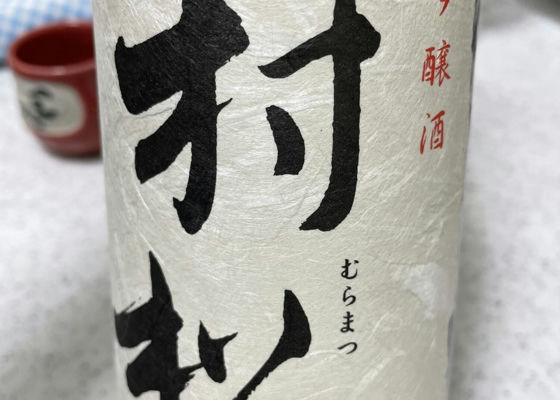 吟醸酒
村松
むらまつ